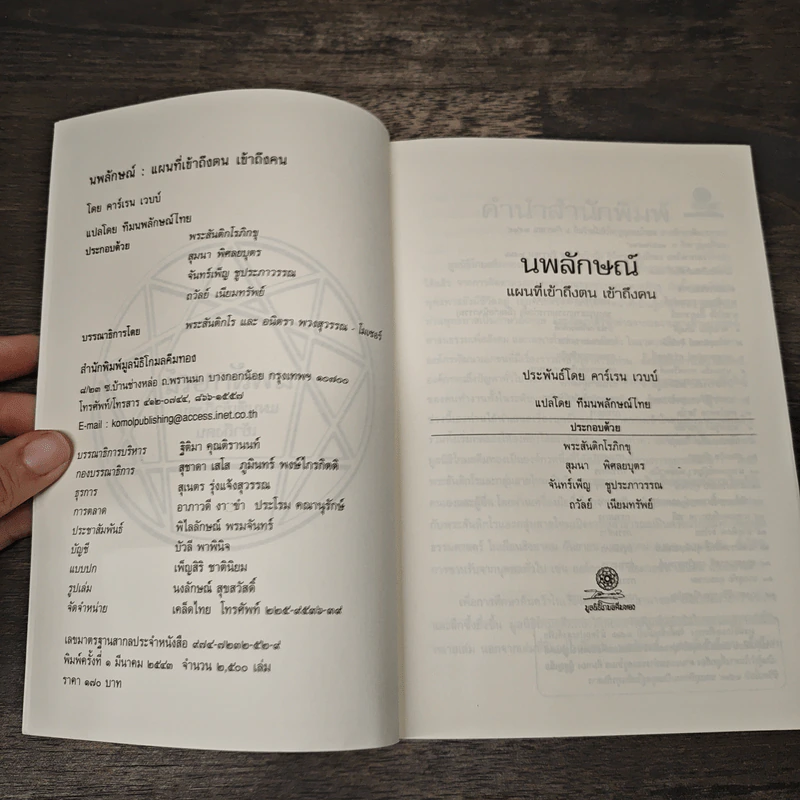 นพลักษณ์ : แผนที่เข้าถึงตน เข้าถึงคน
โดย คาร์เรน เวบบ์
แปลโดย ทีมนพลักษณ์ไทย
ประกอบด้วย พระสันติกโรภิกขุ
สุมนา พิศลยบุตร
จันทร์เพ็ญ ชูประภาวรรณ
ถวัลย์ เนียมทรัพย์
บรรณาธิการโดย พระสันติกโร และ อนิตรา พวงสุวรรณ - โมเซอร์
สำนักพิมพ์มูลนิธิโกมลคีมทอง
๘/๒๓ ซ.บ้านช่างหล่อ ถ.พรานนก บางกอกน้อย กรุงเทพฯ ๑๐๗๐๐
โทรศัพท์/โทรสาร ๔๑๒-๐๗๔๔, ๘๖๖-๑๕๕๗
E-mail : komolpublishing@access.inet.co.th
บรรณาธิการบริหาร ฐิติมา คุณติรานนท์
กองบรรณาธิการ สุชาดา เสโส ภูมินทร์ พงษ์ไกรกิตติ
ธุรการ สุเนตร รุ่งแจ้งสุวรรณ
การตลาด อาภาวดี งาขำ ประโรม คณานุรักษ์
ประชาสัมพันธ์ พิไลลักษณ์ พรมจันทร์
บัญชี บัวลี พาพินิจ
แบบปก เพ็ญสิริ ชาตินิยม
รูปเล่ม นงลักษณ์ สุขสวัสดิ์
จัดจำหน่าย เคล็ดไทย โทรศัพท์ ๒๒๕-๙๕๓๖-๓๙
เลขมาตรฐานสากลประจำหนังสือ ๙๗๔-๗๒๓๒-๕๒-๙
พิมพ์ครั้งที่ ๑ มีนาคม ๒๕๔๓ จำนวน ๒,๕๐๐ เล่ม
ราคา ๑๗๐ บาท
นพลักษณ์
แผนที่เข้าถึงตน เข้าถึงคน
ประพันธ์โดย คาร์เรน เวบบ์
แปลโดย ทีมนพลักษณ์ไทย
ประกอบด้วย
พระสันติกโรภิกขุ
สุมนา พิศลยบุตร
จันทร์เพ็ญ ชูประภาวรรณ
ถวัลย์ เนียมทรัพย์
มูลนิธิโกมลคีมทอง